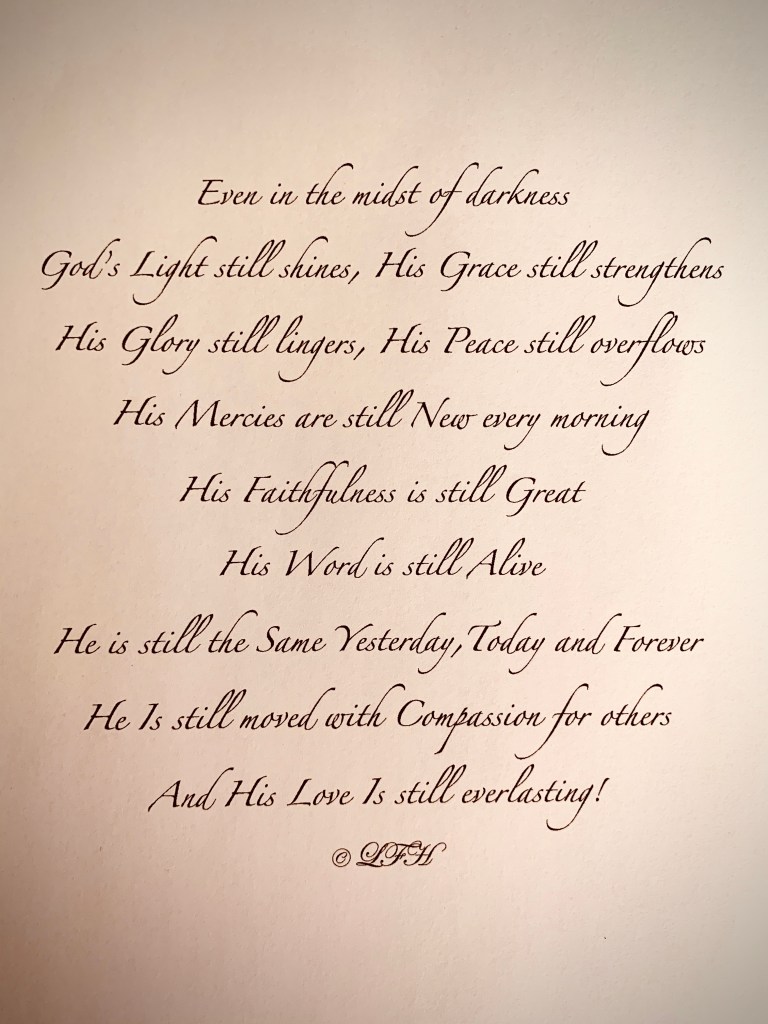 Even in the midst of darkness
God's Light still shines, His Grace still strengthens
His Glory still lingers, His Peace still overflows
His Mercies are still New every morning
His Faithfulness is still Great
His Word is still Alive
He is still the Same Yesterday,Today and Forever
He Is still moved with Compassion for others
And His Love Is still everlasting!
© LFH